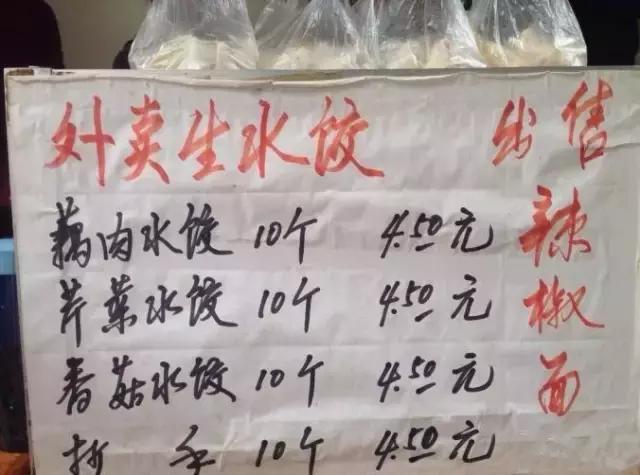 外卖生水饺
藕肉水饺 10个 4.50元
芹菜水饺 10个 4.50元
香菇水饺 10个 4.50元
抄手 10个 4.50元
出售
辣椒面